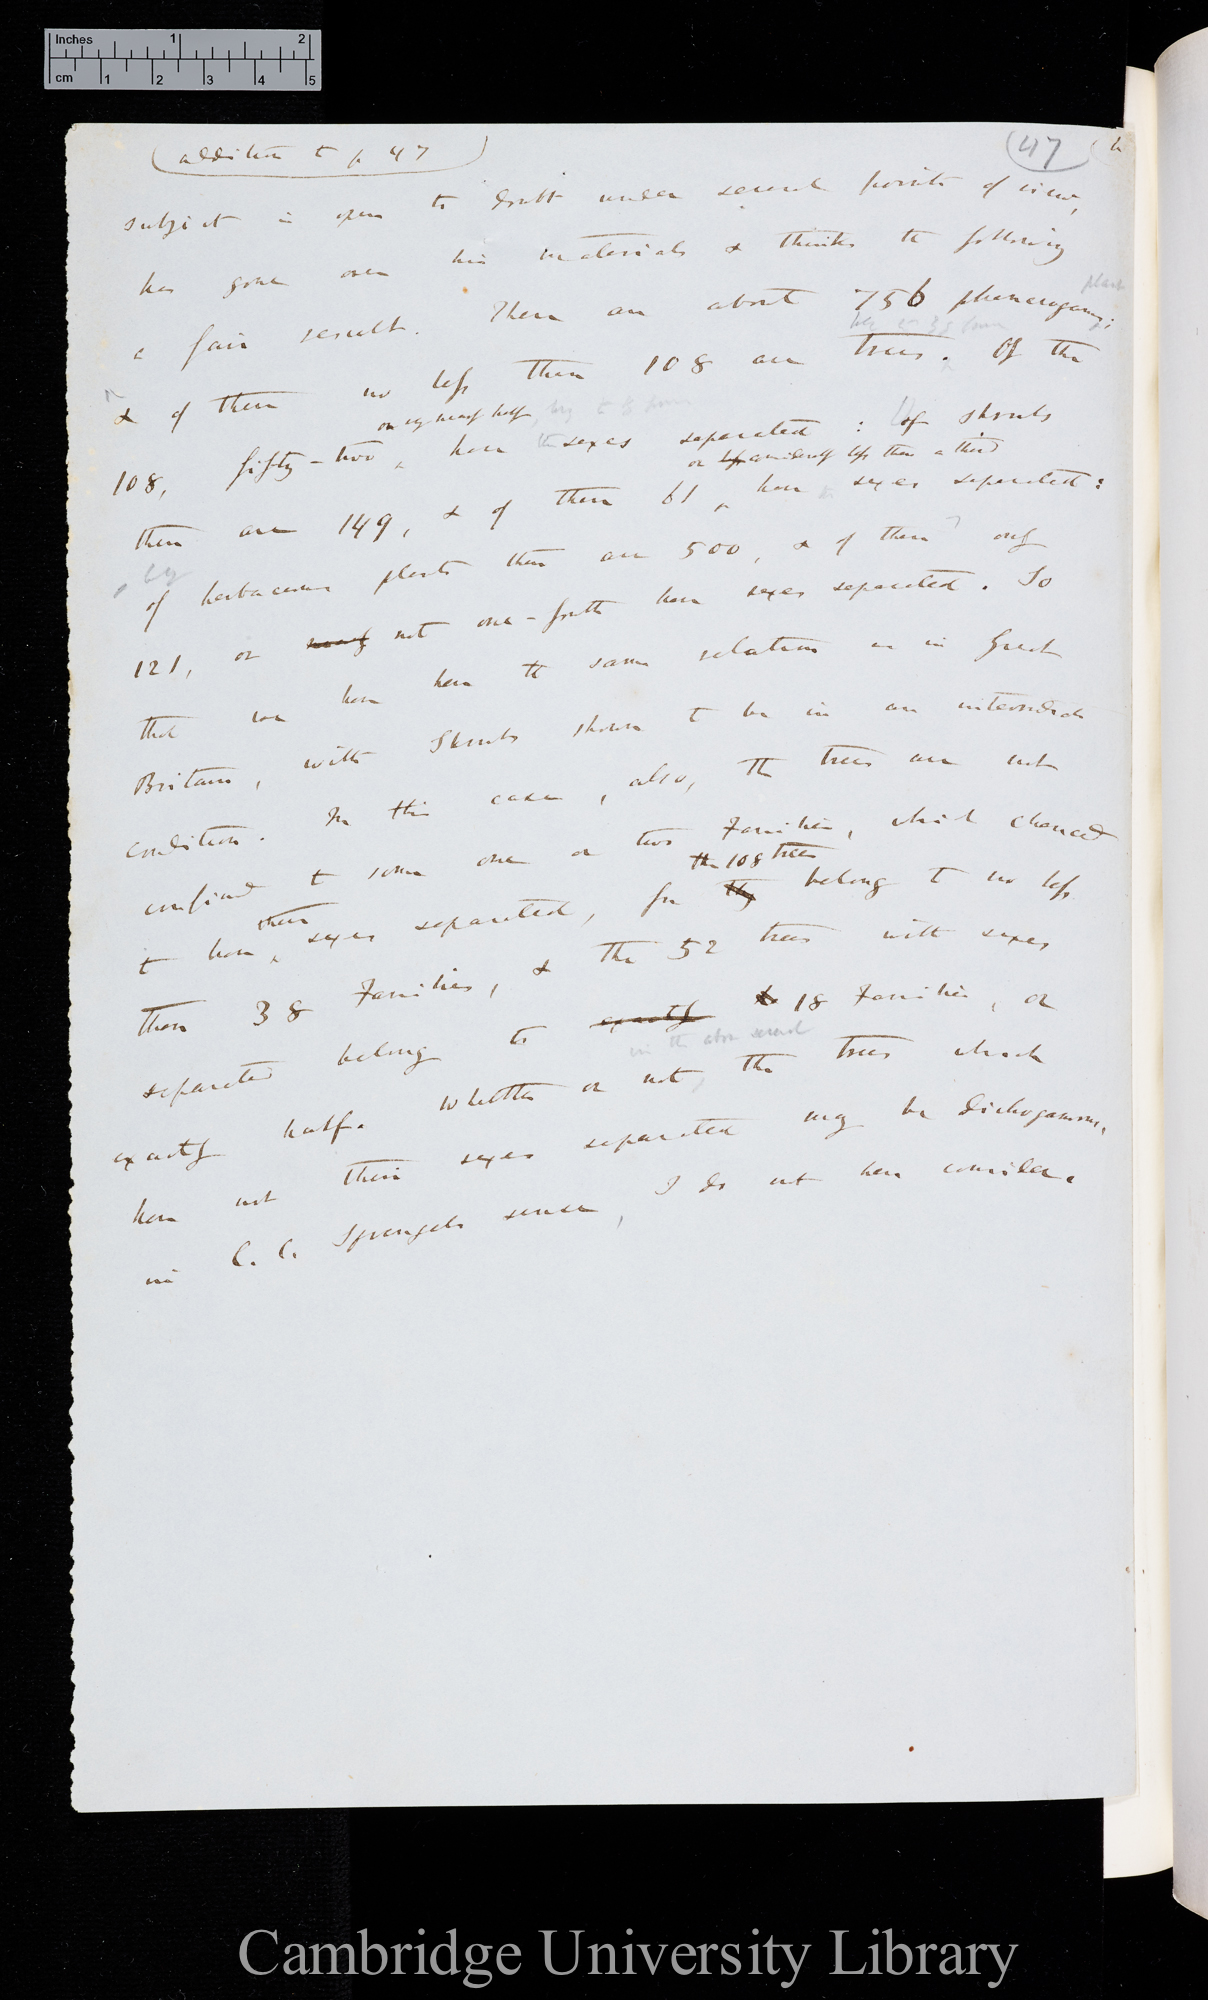 Inches 1 2
cm 1 2 3 4 5
addition to p 47
47
subject is open to doubt under several points of view,
has gone over his materials & thinks the following
plants
a fair result. There are about 756 phanerogamic
& of them no less than 108 are trees. Of the
or very nearly half,
108, fifty-two, have the sexes separated: of shrubs
or less considerably less than a third
there are 149, & of them 61, have the sexes separated:
of herbaceous plants there are 500, & of them only
121, or nearly not one-fourth have sexes separated. So
that we have here the same relation as in Great
Britain, with Shrubs shown to be in an intermediate
condition. In this case, also, the trees are not
confined to some one or two Families, which chanced
their the 108 trees
to have sexes separated, for they belong to no less
than 38 Families, & the 52 trees with sexes
separated belong to exactly to 18 Families, or
in the above several
exactly half. Whether or not, the trees which
have not their sexes separated may be dichogamous,
in C. C. Sprengels sense, I do not here consider.
Cambridge University Library